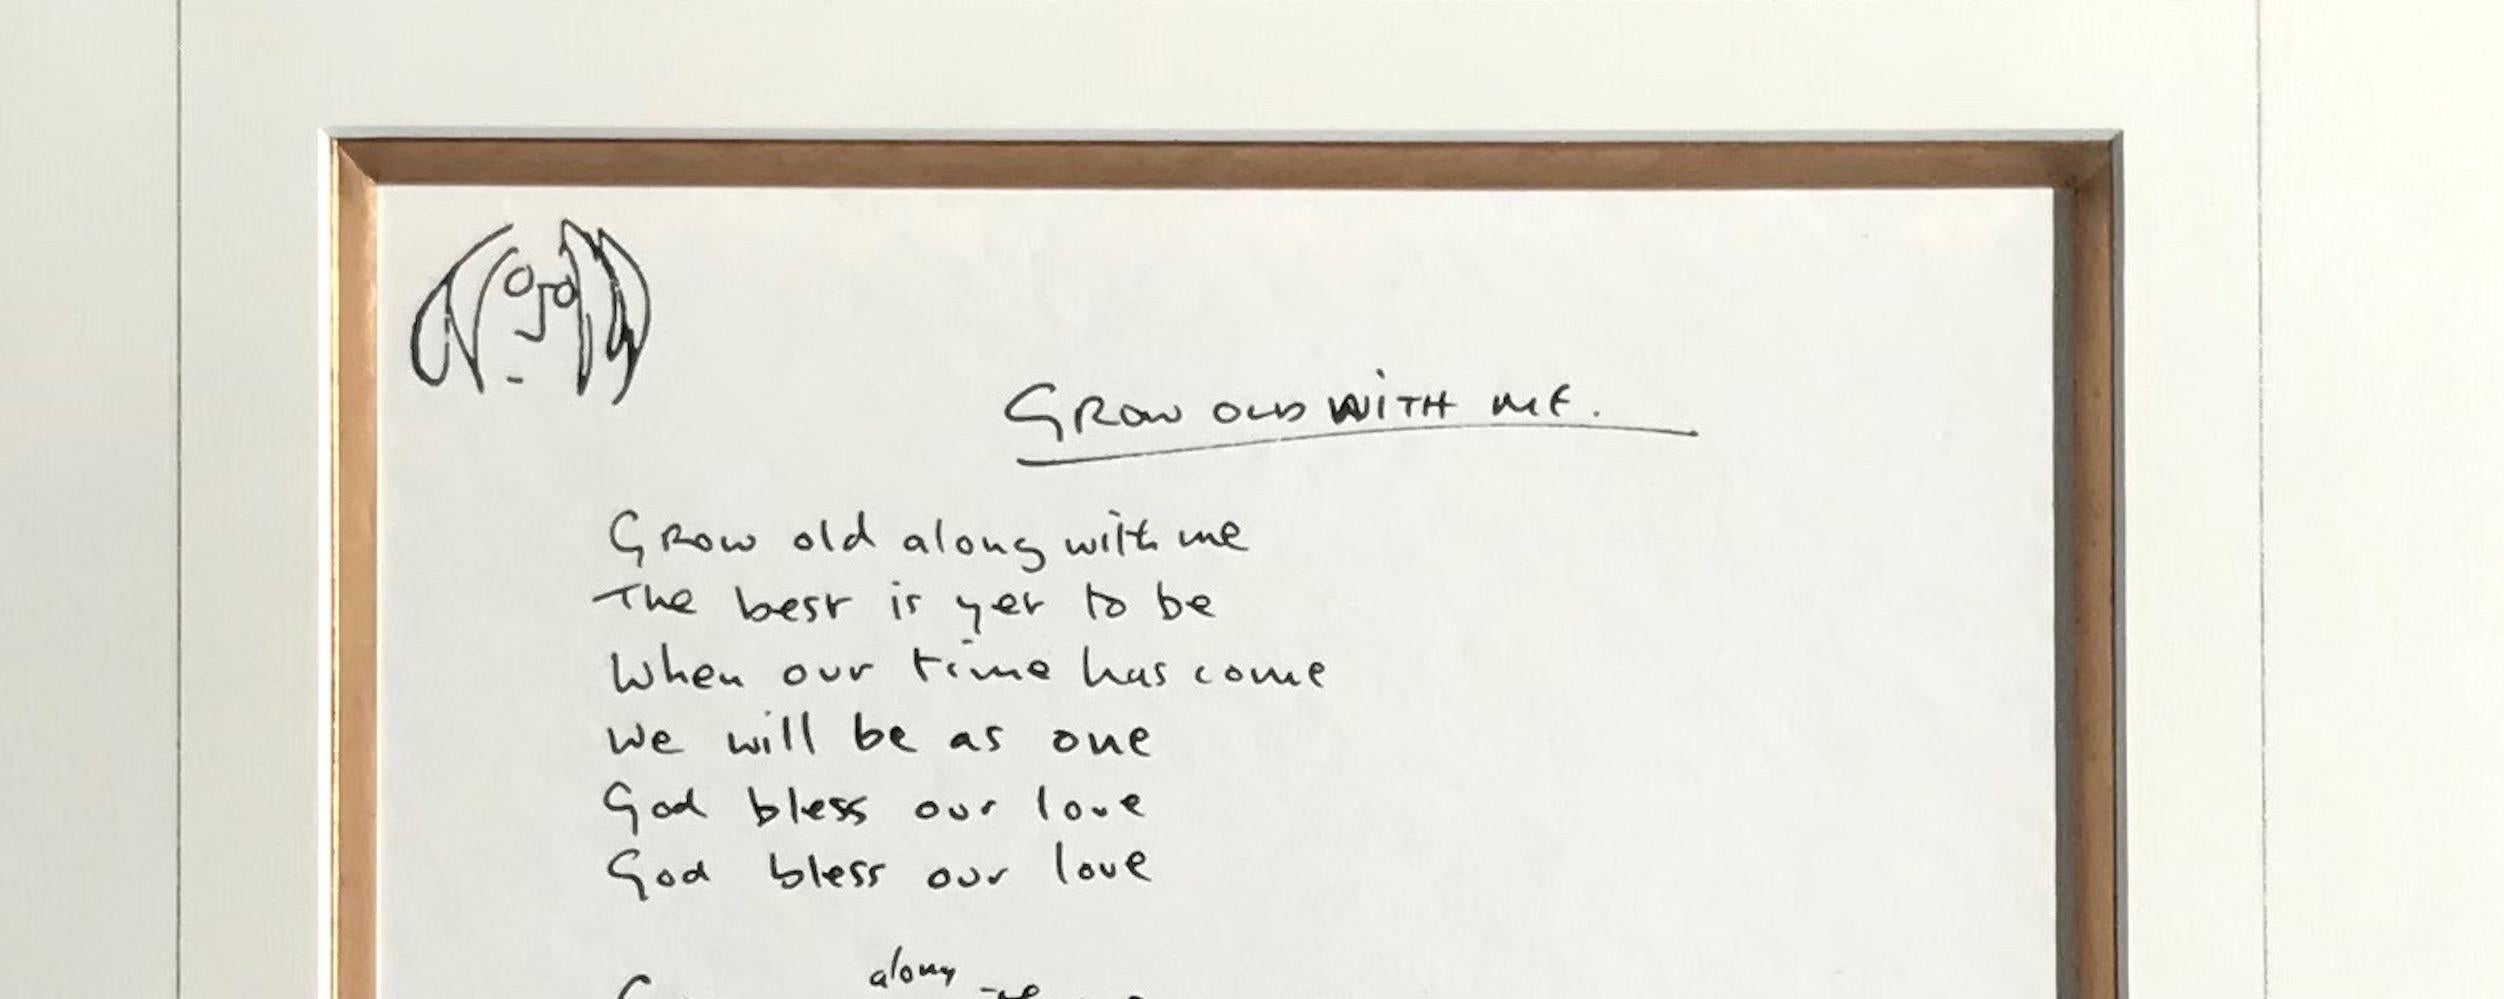 GROW OLD WITH ME.
GRow old along with me
The best is yet to be
When our time has come
We will be as one
God bless our love
God bless our love
along